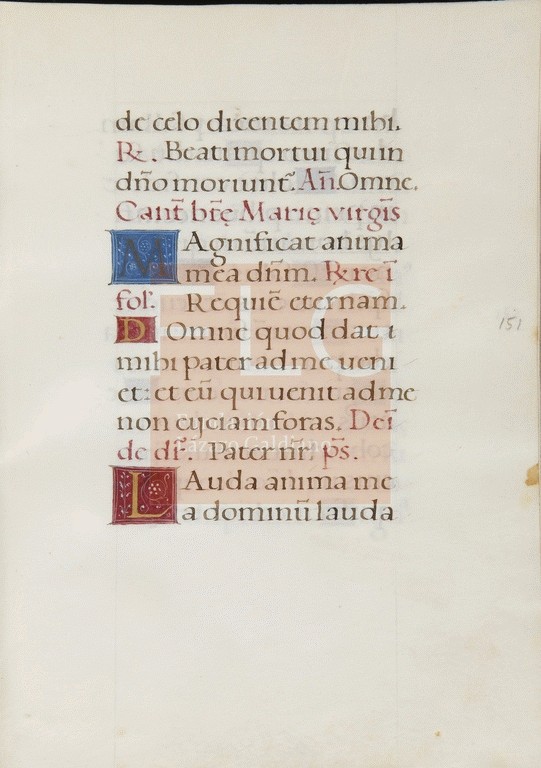 de celo dicentem mihi.
R. Beati mortui qui in
dn̄o moriunt̄. An̄. Omne.
Cant̄ bt̄ę Marię virgīs
MAgnificat anima
mea dn̄m. R. re ī
fol. Requiē eternam.
DOmne quod dat
mihi pater ad me ueni
et: et eū qui uenit ad me
non eyciam foras. Deī
de Pater nr̄. ps.
LAuda anima me
a dominū lauda
151
FLG
Fundación
Lázaro Galdiano